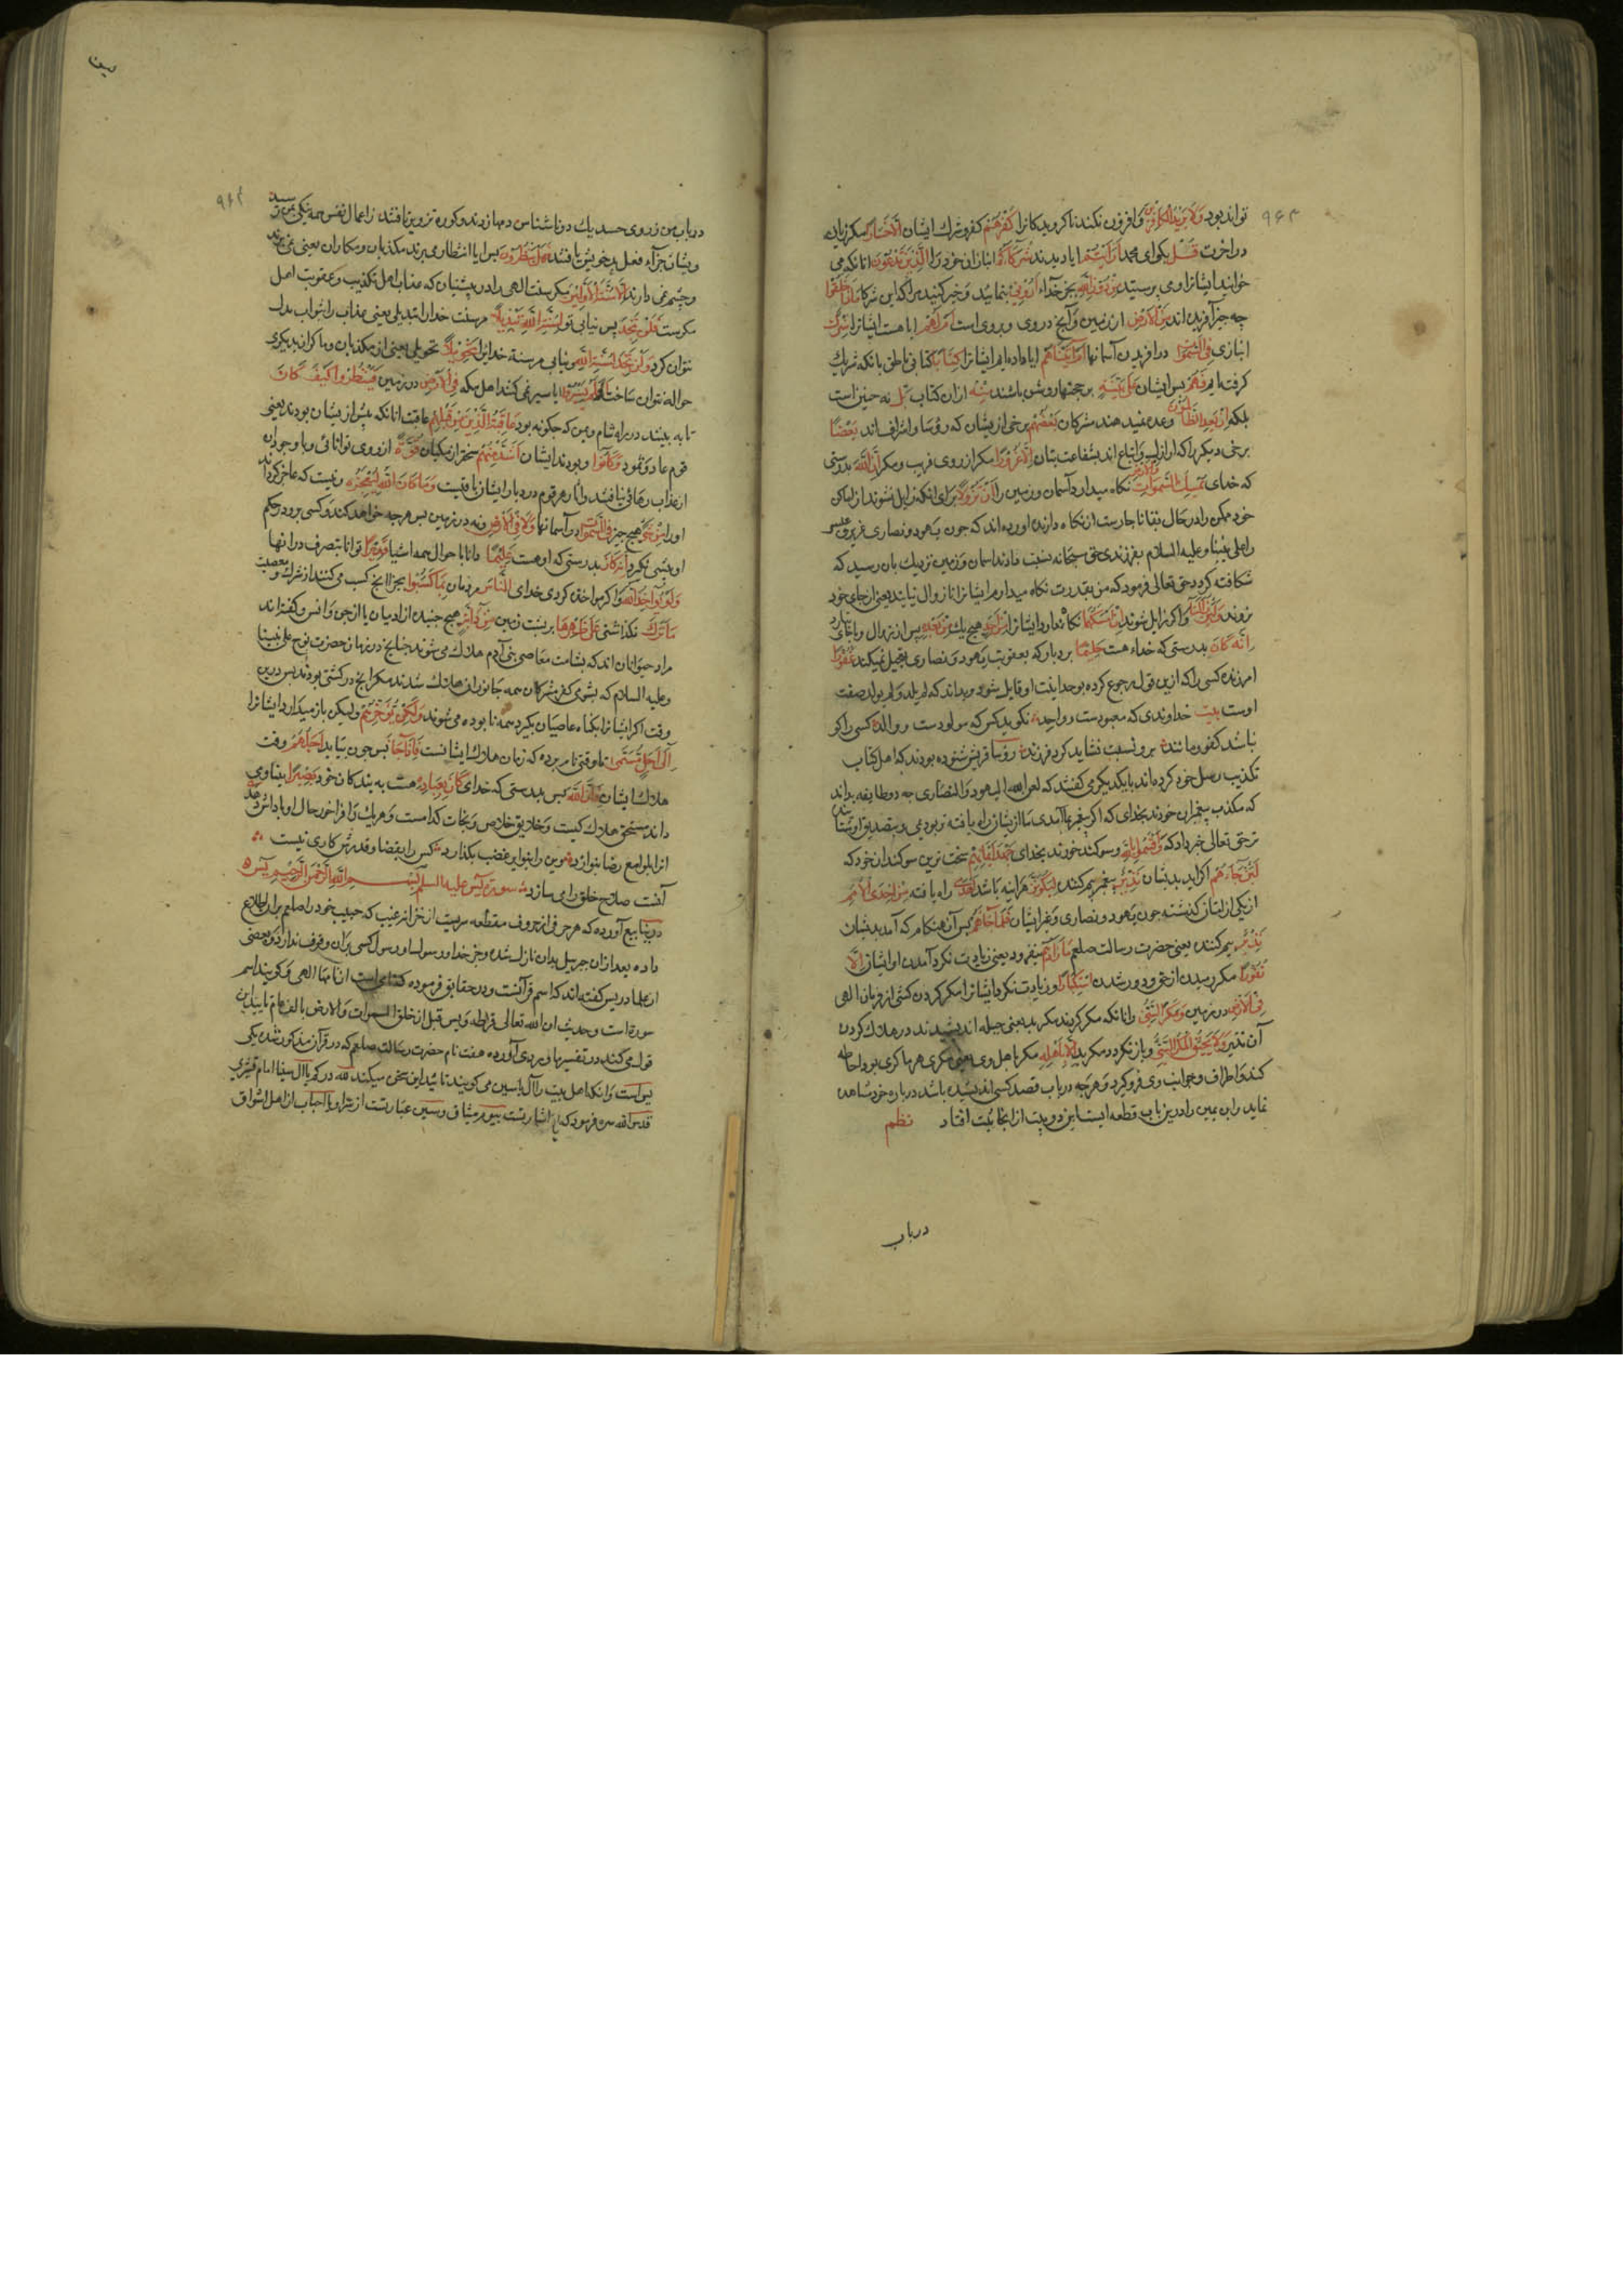 تواند بود وَلَا يَزِيدُ الْكَافِرِينَ و افزون نکند ناکرویدکانرا كُفْرُهُمْ کفر و شرک ایشان إِلَّا خَسَارًا مکر زیان
در اخرت قُلْ بکوای محمد أَرَأَيْتُمْ ایا دیدید شُرَكَاءَكُمُ انبازان خود را الَّذِينَ تَدْعُونَ انانکه می
خوانید ایشانرا و می پرستید مِنْ دُونِ اللَّهِ بجز خدا أَرُونِي بنمایید و خبر کنید مرا که این شرکا مَاذَا خَلَقُوا
چه چیز آفریده اند مِنَ الْأَرْضِ از زمین و آنچ در وی و بروی است أَمْ لَهُمْ ایا هست ایشانرا شِرْكٌ
انبازی فِي السَّمَوَاتِ در افریدن آسمانها أَمْ آتَيْنَاهُمْ ایا داده ایم ایشانرا كِتَابًا کتابی ناطق بانکه شریک
کرفته ایم فَهُمْ پس ایشان عَلَى بَيِّنَةٍ بر حجتهاء روشن باشند مِنْهُ ازان کتاب بَلْ نه چنین است
بلکه إِنْ يَعِدُ الظَّالِمُونَ وعده نمیدهند مشرکان بَعْضُهُمْ برخی از یشان که رؤسا و اشراف اند بَعْضًا
برخی دیکر را که اراذل و اتباع اند بشفاعت بتان إِلَّا غُرُورًا مکر از روی فریب و مکر إِنَّ اللَّهَ بدرستی
که خدای يُمْسِكُ السَّمَوَاتِ وَالْأَرْضَ نکاه میدارد آسمان و زمین را أَنْ تَزُولَا برای انکه زایل نشوند از اماکن
خود ممکن را در حال بقا ناچارست از نکاه دارنده اورده اند که چون یهود و نصاری عزیر و عیسی
را علی نبینا و علیه السلام بفرزندی حق سبحانه نسبت دادند اسمان و زمین نزدیک بان رسید که
شکافته کردد حق تعالی فرمود که من بقدرت نکاه میدارم ایشانرا تا زوال نیابند یعنی از جای خود
نروند وَلَئِنْ زَالَتَا و اکر زایل شوند إِنْ أَمْسَكَهُمَا نکاه ندارد ایشانرا مِنْ أَحَدٍ هیچ یک مِنْ بَعْدِهِ پس از
إِنَّهُ كَانَ بدرستی که خداء هست حَلِيمًا بردبار که بعقوبت یهود و نصاری تعجیل نمیکند غَفُورًا
امرزنده کسی را که ازین قول رجوع کرده بوحدانیت او قایل شود و بداند که لم یلد و لم یولد صفت
اوست بیت خداوندی که معبودست و واحد نکوید کس که مولودست و والد کسی را کو
نباشد کفو و مانند برو نسبت نشاید کرد فرزند رؤساء قریش شنوده بودند که اهل کتاب
تکذیب رسل خود کرده اند با یکدیکر می کفتند که لعن الله الیهود و النصاری چه دو طایفه بداند
که مکذب پیغمبران خودند بخدای که اکر پیغمبر بما آمدی ما از یشان راه یافته تر بودیمی
حق تعالی خبر داد که وَأَقْسَمُوا بِاللَّهِ و سوکند خوردند بخدای جَهْدَ أَيْمَانِهِمْ سخت ترین سوکندان خود که
لَئِنْ جَاءَهُمْ اکر اید بدیشان نَذِيرٌ پیغمبر بیم کننده لَيَكُونُنَّ هراینه باشند أَهْدَى راه یافته مِنْ إِحْدَى الْأُمَمِ
از یکی از امتان کذشته چون یهود و نصاری و غیر ایشان فَلَمَّا جَاءَهُمْ پس آن هنکام که آمد بدیشان
نَذِيرٌ بیم کننده یعنی حضرت رسالت صلعم مَا زَادَهُمْ نیفزود یعنی زیادت نکرد آمدن او ایشانرا إِلَّا
نُفُورًا مکر رمیدن از حق و دور شدن اسْتِكْبَارًا و زیادت نکرد ایشانرا مکر کردن کشی از فرمان الهی
فِي الْأَرْضِ در زمین وَمَكْرَ السَّيِّئِ و انانکه مکر کردند مکر بد یعنی حیله اندیشیدند در هلاک کردن
آن نذیر وَلَا يَحِيقُ الْمَكْرُ السَّيِّئُ و باز نکردد مکر بد إِلَّا بِأَهْلِهِ مکر باهل وی یعنی مکری هر ماکری بدو احاطه
کند و اطراف و جوانب وی فرو کیرد و هرچه در باب قصد کسی اندیشیده باشد در باره خود مشاهده
نماید و ابن یمین را درین باب قطعه ایست این دو بیت از انجا ثبت افتاد نظم
در باب
در باب من ز روی حسد یک دو ناشناس دمها زدند و کوره تزویر تافتند ز اعمال نفس همه نیکی بمن رسید
و یشان جزاء فعل بد خویش یافتند فَهَلْ يَنْظُرُونَ پس ایا انتظار می برند مکذبان و مکاران یعنی نمی برند
و چشم نمی دارند إِلَّا سُنَّتَ الْأَوَّلِينَ مکر سنت الهی را در پیشینان که عذاب اهل تکذیب و عقوبت اهل
مکرست فَلَنْ تَجِدَ پس نیابی تو لِسُنَّتِ اللَّهِ تَبْدِيلًا مر سنت خدا را تبدیلی یعنی عذاب را بثواب بدل
نتوان کرد وَلَنْ تَجِدَ لِسُنَّتِ اللَّهِ و نیابی مر سنة خدایرا تَحْوِيلًا تحویلی یعنی از مکذبان و ماکران بدیکری
حواله نتوان ساخت أَوَلَمْ يَسِيرُوا ایا سیر نمی کنند اهل مکه فِي الْأَرْضِ در زمین فَيَنْظُرُوا كَيْفَ كَانَ
تا به بینند در راه شام و یمن که چکونه بود عَاقِبَةُ الَّذِينَ مِنْ قَبْلِهِمْ عاقبت انانکه پیش از یشان بودند یعنی
قوم عاد و ثمود وَكَانُوا و بودند ایشان أَشَدَّ مِنْهُمْ سختر از مکیان قُوَّةً از روی توانائی و با وجود ان
از عذاب رهائی نیافتند و اثار هر قوم در دیار ایشان باقیست وَمَا كَانَ اللَّهُ لِيُعْجِزَهُ و نیست که عاجز کرداند
او را مِنْ شَيْءٍ هیچ چیز فِي السَّمَوَاتِ در آسمانها وَلَا فِي الْأَرْضِ و نه در زمین پس هرچه خواهد کند و کسی برو در حکم
او پیشی نکیرد إِنَّهُ كَانَ بدرستی که او هست عَلِيمًا دانا باحوال همه اشیا قَدِيرًا توانا بتصرف در انها
وَلَوْ يُؤَاخِذُ اللَّهُ و اکر مواخذه کردی خدای النَّاسَ مردمان بِمَا كَسَبُوا بجزا انچ کسب می کنند از شرک و معصیت
مَا تَرَكَ نکذاشتی عَلَى ظَهْرِهَا بر پشت زمین مِنْ دَابَّةٍ هیچ جنبنده از ادمیان یا از جن و انس و کفته اند
مراد حیوانان اند که بشامت معاصی بنی آدم هلاک می شوند چنانچ در زمان حضرت نوح علی نبینا
و علیه السلام که بشومی کفر مشرکان همه جانوران هلاک شدند مکر انچ در کشتی بودند پس درین
وقت اکر ایشانرا بکناه عاصیان بکیرد همه نابوده می شوند وَلَكِنْ يُؤَخِّرُهُمْ ولیکن باز میدارد ایشانرا
إِلَى أَجَلٍ مُسَمًّى تا وقتی نام برده که زمان هلاک ایشانست فَإِذَا جَاءَ پس چون بیاید أَجَلُهُمْ وقت
هلاک ایشان فَإِنَّ اللَّهَ پس بدرستی که خدای كَانَ بِعِبَادِهِ هست به بندکان خود بَصِيرًا بینا و می
داند مستحق هلاک کیست و خلایق خلاص و نجات کدامست و هریک را فراخور حال او پاداش دهد
انرا بلوامع رضا بنوازد وین را بنوایر غضب بکدازد کس را بقضا و قدرش کاری نیست
آنست صلاح خلق را می سازد سورة یس علیه السلم بسم الله الرحمن الرحیم یس
در ینابیع آورده که هر حرفی از حروف مقطعه سریست از خزانه غیب که حبیب خود را صلعم بران اطلاع
داده بعد ازان جبریل بدان نازل شده و جز خدا و رسول او کسی بران وقوف ندارد و بعضی
از علما در یس کفته اند که اسم قرآنست و در حقایق فرموده که نامی است از نامها الهی و کویند اسم
سوره است و حدیث ان الله تعالی قرا طه و یس قبل از خلق السموات و الارض بالف عام تایید این
قول می کند در تفسیر ماوردی آورده هفت نام حضرت رسالت صلعم که در قرآن مذکور شده یکی
یس است و انکه اهل بیت را آل یاسین می کویند تائید این سخن میکند
قدس الله سره فرمود که یا اشارتست بیوم میثاق و سین عبارتست از سر او با احباب
۹۶۳
۹۶۴